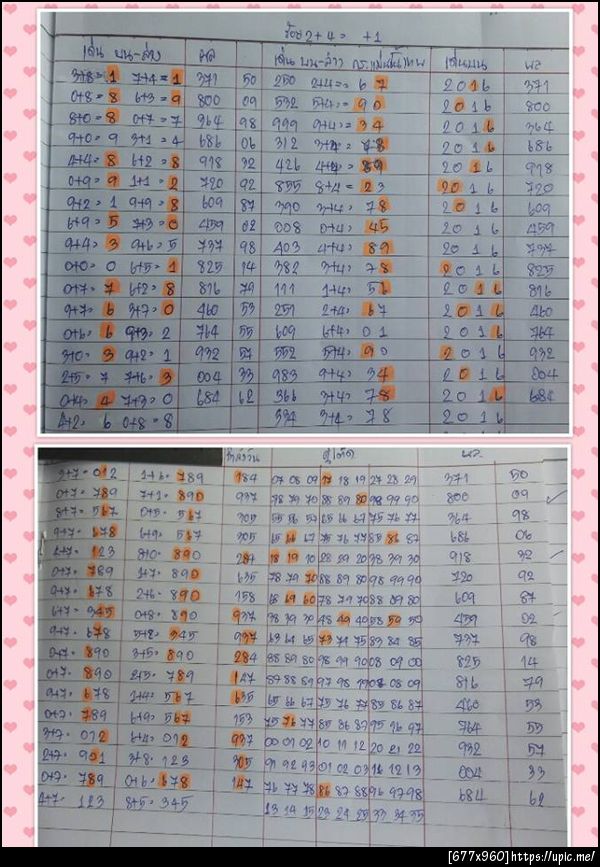 ร้อย 2+4 = +1
เด่น บน-ล่าง ผล เด่น บน-ล่าง เด่นบน ผล
3+8= 1 7+4 = 1 371 50 250 2+4= 6 7 2 0 1 6 371
0+8 = 8 6+3 = 9 800 09 532 5+4= 9 0 2 0 1 6 800
8+0 = 8 0+7 = 7 364 98 999 9+4= 3 4 2 0 1 6 364
9+0 = 9 3+1 = 4 686 06 312 3+4= 78 2 0 1 6 686
4+4= 8 6+2 = 8 918 32 426 4+4= 89 2 0 1 6 918
0+9 = 9 1+1 = 2 720 92 855 8+4 = 23 2 0 1 6 720
9+2 = 1 9+9 = 8 609 87 390 3+4= 78 2 0 1 6 609
6+9= 5 7+3= 0 459 02 008 0+4= 45 2 0 1 6 459
9+4= 3 9+6= 5 737 98 403 4+4= 89 2 0 1 6 737
0+0= 0 6+5= 1 825 14 382 3+4= 78 2 0 1 6 825
0+7= 7 6+2= 8 816 79 111 1+4= 56 2 0 1 6 816
9+7= 6 3+7= 0 460 53 251 2+4= 67 2 0 1 6 460
0+6= 6 9+3= 2 764 55 609 6+4= 01 2 0 1 6 764
3+0= 3 9+2= 1 932 57 552 5+4= 90 2 0 1 6 932
2+5= 7 7+6= 3 004 33 983 9+4= 34 2 0 1 6 004
0+4= 4 7+3= 0 684 62 366 3+4= 78 2 0 1 6 684
4+2= 6 0+8 = 8 334 3+4= 78 2 0 1 6
ผล
3+7= 012 1+6= 789 184 07 08 09 17 18 19 27 28 29 371 50
0+7= 789 7+1= 890 937 78 79 70 88 89 80 98 99 90 800 09
8+7= 567 0+5= 567 305 55 56 57 65 66 67 75 76 77 364 98
9+7= 678 6+9= 567 305 65 66 67 75 76 77 85 86 87 686 06
4+7= 123 8+0= 890 284 18 19 10 28 29 20 38 39 30 918 32
0+7= 789 1+7= 890 635 78 79 70 88 89 80 98 99 90 720 92
9+7= 678 2+6= 890 158 68 69 60 78 79 70 88 89 80 609 87
6+7= 345 0+8= 890 937 38 39 30 48 49 40 58 59 50 459 02
9+7= 678 5+8= 345 937 63 64 65 73 74 75 83 84 85 737 98
0+7= 890 3+5= 890 284 88 89 80 98 99 90 08 09 00 825 14
0+7= 890 2+5= 789 147 87 88 89 97 98 99 07 08 09 816 79
9+7= 678 1+4= 567 635 65 66 67 75 76 77 85 86 87 460 53
0+7= 789 6+9= 567 153 75 76 77 85 86 87 95 96 97 764 55
3+7= 012 6+4= 012 937 00 01 02 10 11 12 20 21 22 932 57
2+7= 901 3+8= 123 305 91 92 93 01 02 03 11 12 13 004 33
0+7= 789 0+6= 678 147 76 77 78 86 87 88 96 97 98 684 62
4+7= 123 8+5= 345 13 14 15 23 24 25 33 34 35
[677x960]https://upic.me/